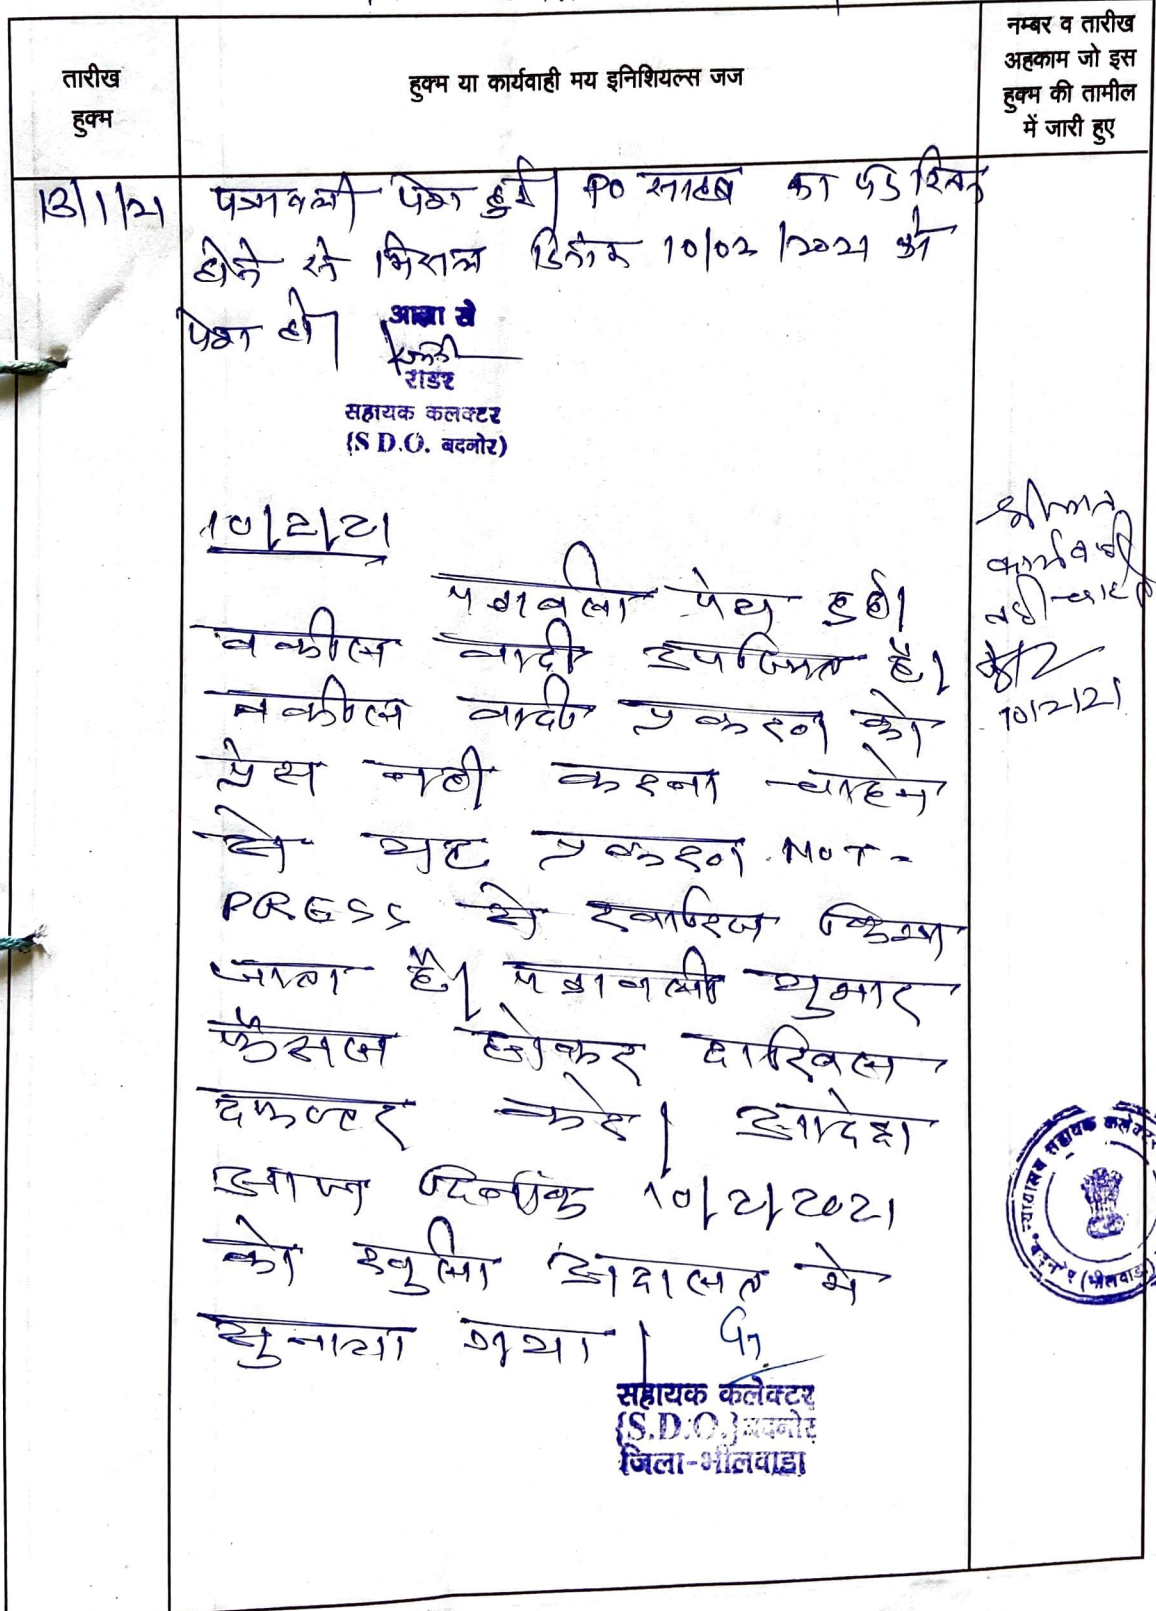 तारीख
हुक्म
हुक्म या कार्यवाही मय इनिशियल्स जज
नम्बर व तारीख
अहकाम जो इस
हुक्म की तामील
में जारी हुए
13/1/21 पत्रावली पेश हुई। PO साहब का पद रिक्त
होने से मिसल दिनांक 10/02/2021 को
पेश हो।
आज्ञा से
रीडर
सहायक कलक्टर
(S D.O. बदनोर)
10/2/21
पत्रावली पेश हुई।
वकील वादी उपस्थित है।
वकील वादी प्रकरण को
प्रेस नही करना चाहने
से यह प्रकरण NOT-
PRESS से खारिज किया
जाता है। पत्रावली शुमार
फैसल होकर दाखिल
दफ्तर करे। आदेश
आज दिनांक 10/2/2021
को खुली अदालत मे
सुनाया गया।
सहायक कलेक्टर
{S.D.O.} बदनोर
जिला-भीलवाडा
श्रीमान
कार्यवाही
नही चाहते
10/2/21
न्यायालय सहायक कलेक्टर
बदनोर (भीलवाडा)